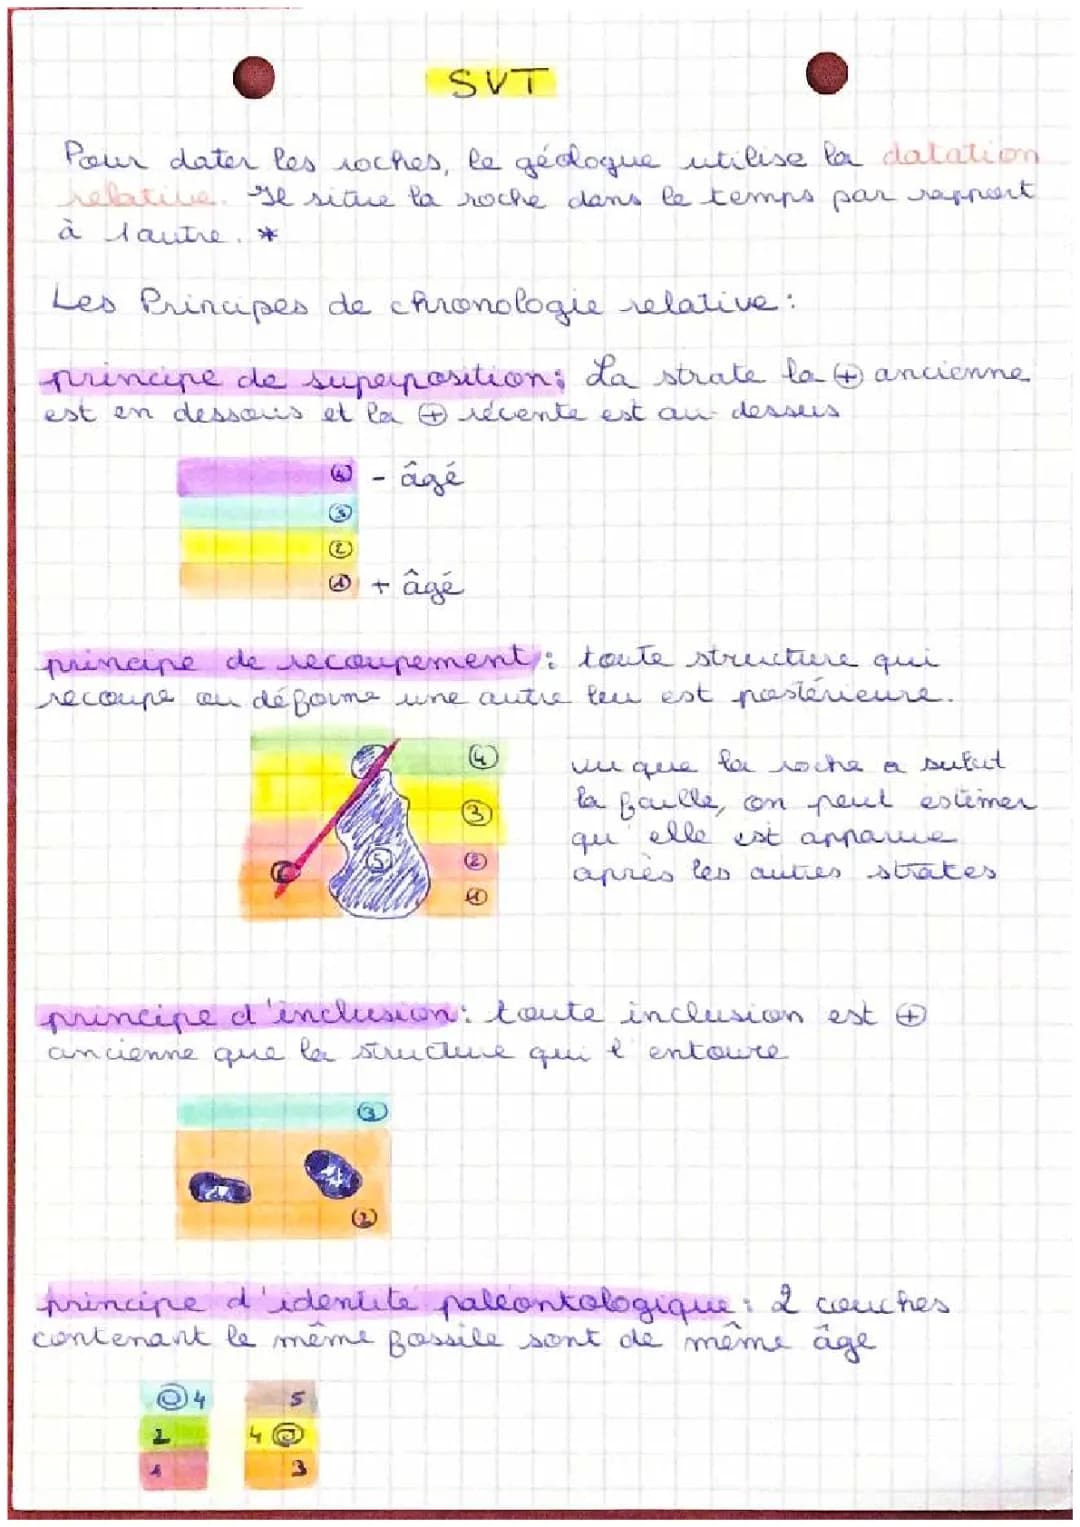 SVT
Pour dater les roches, le géologue utilise la datation
relative. Il situe la roche dans le temps par rapport
à l'autre. *
Les Principes de chronologie relative :
principe de superposition : La strate la ⊕ ancienne
est en dessous et la ⊕ récente est au-dessus
④ - âgé
③
②
① + âgé
principe de recoupement : toute structure qui
recoupe ou déforme une autre leu est postérieure.
④
③
②
①
⑤
⑥
vu que la roche a subit
la faille, on peut estimer
qu'elle est apparue
après les autres strates
principe d'inclusion : toute inclusion est ⊕
ancienne que la structure qui l'entoure
③
1 1
②
principe d'identité paléontologique : 2 couches
contenant le même fossile sont de même âge
4 5
2 4
1 3